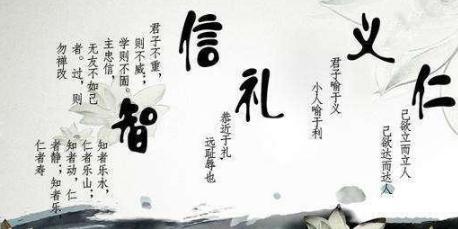 仁
己欲立而立人
己欲达而达人
义
君子喻于义
小人喻于利
礼
恭近于礼，
远耻辱也
信
君子不重，
则不威；
学则不固。
主忠信，
无友不如己
者。过，则
勿惮改
智
知者乐水，
仁者乐山；
知者动，仁
者静；知者乐，
仁者寿